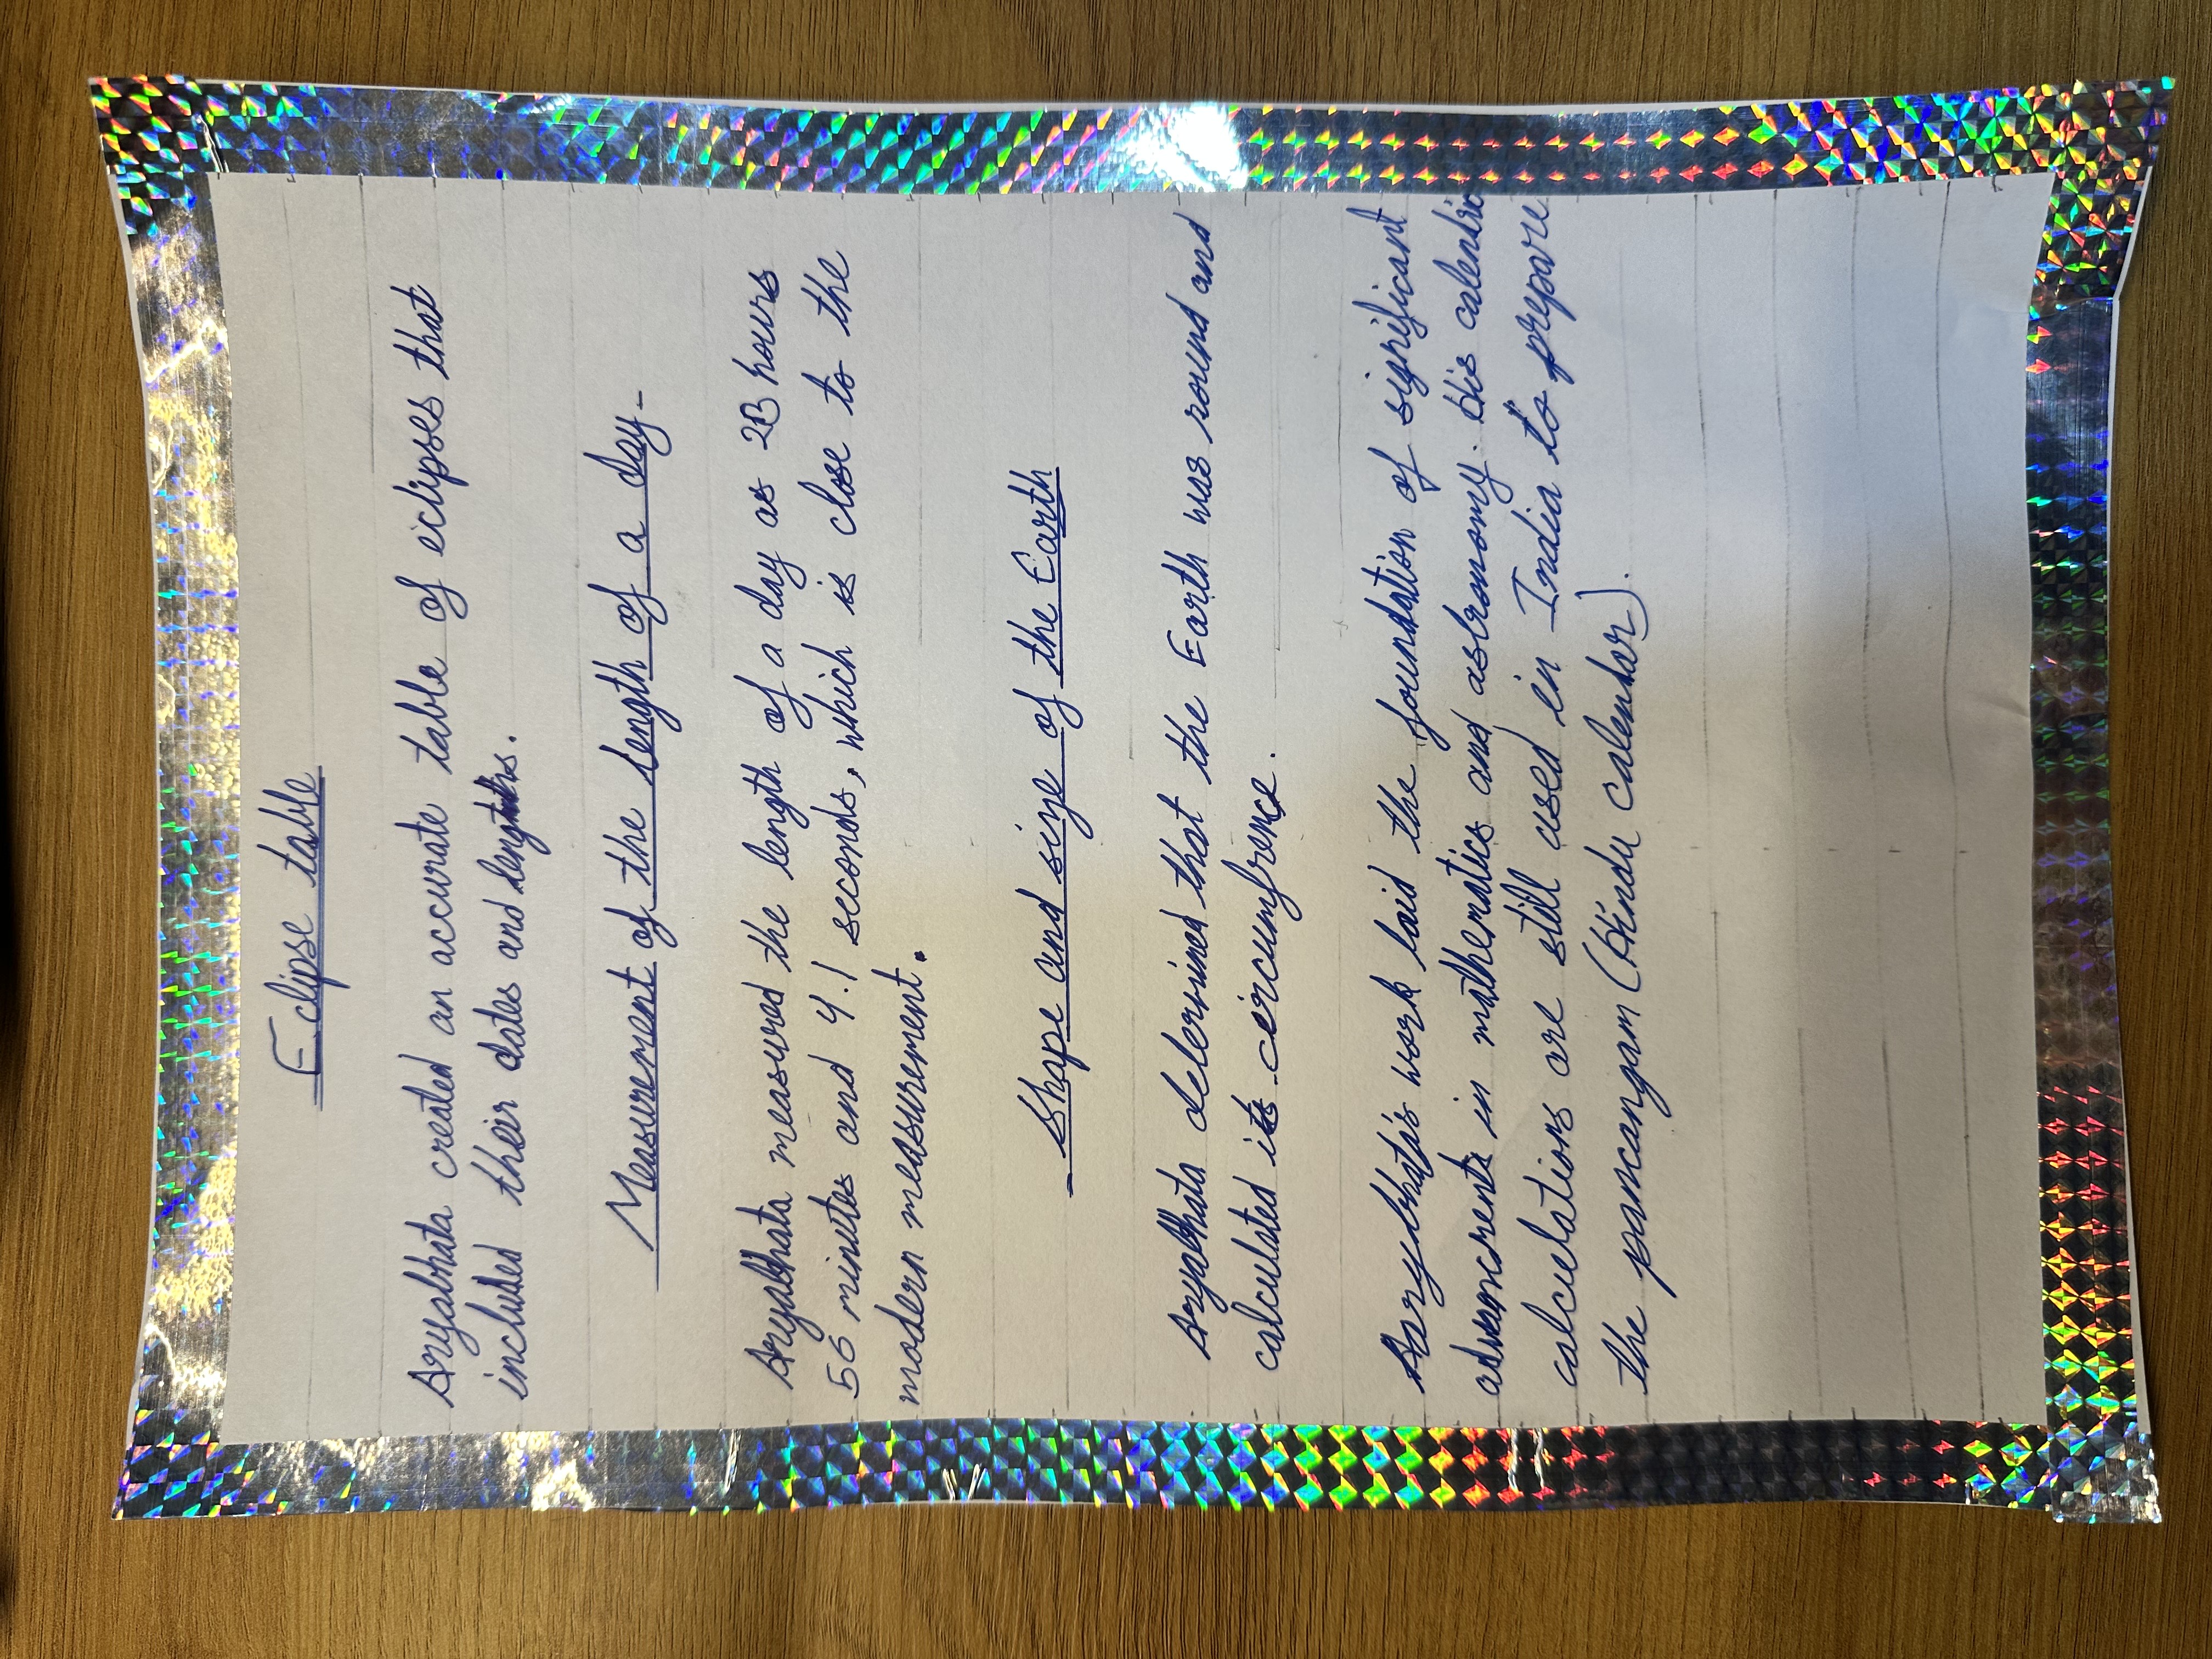 Eclipse table
Aryabhata created an accurate table of eclipses that
included their dates and lengths.
Measurement of the length of a day-
Aryabhata measured the length of a day as 23 hours
56 minutes and 4.1 seconds, which is close to the
modern measurement.
Shape and size of the Earth
Aryabhata determined that the Earth was round and
calculated its circumfrence.
Aarybhata's work laid the foundation of significant
advancments in mathematics and astronomy. His calendric
calculations are still used in India to prepare
the pancangam (Hindu calendar).